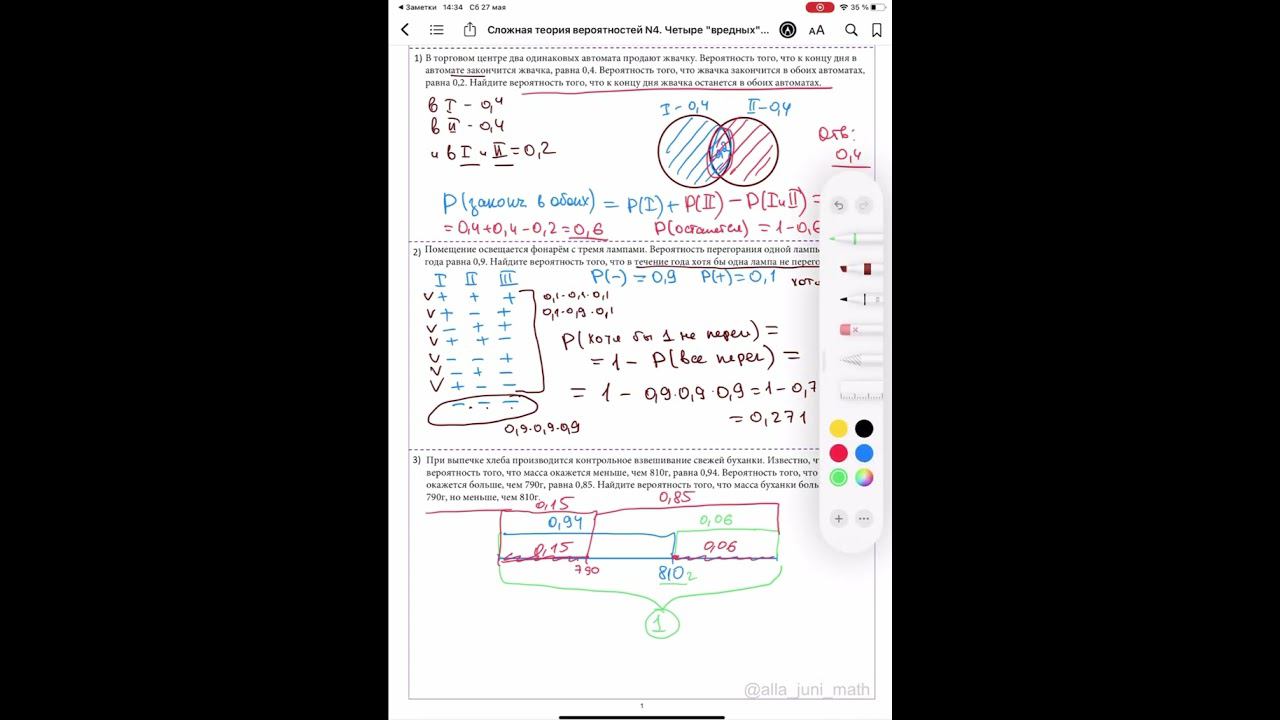 Заметки 14:34 Сб 27 мая 35 %
Сложная теория вероятностей N4. Четыре "вредных"... AA
1) В торговом центре два одинаковых автомата продают жвачку. Вероятность того, что к концу дня в
автомате закончится жвачка, равна 0,4. Вероятность того, что жвачка закончится в обоих автоматах,
равна 0,2. Найдите вероятность того, что к концу дня жвачка останется в обоих автоматах.
в I - 0,4
в II - 0,4
и в I и II = 0,2
I - 0,4 II - 0,4
0,2
Отв:
0,4
P(законч в обоих) = P(I) + P(II) - P(I и II) =
= 0,4 + 0,4 - 0,2 = 0,6 P(останется) = 1 - 0,6
2) Помещение освещается фонарём с тремя лампами. Вероятность перегорания одной лампы
года равна 0,9. Найдите вероятность того, что в течение года хотя бы одна лампа не перего
I II III P(-) = 0,9 P(+) = 0,1 хотя
V + + + 0,1 - 0,1 · 0,1
V + - + 0,1 · 0,9 · 0,1
V - + +
V + + -
V - - +
V - + -
V + - -
- - -
0,9 · 0,9 · 0,9
P(хотя бы 1 не перег) =
= 1 - P(все перег) =
= 1 - 0,9 · 0,9 · 0,9 = 1 - 0,7
= 0,271
3) При выпечке хлеба производится контрольное взвешивание свежей буханки. Известно, ч
вероятность того, что масса окажется меньше, чем 810г, равна 0,94. Вероятность того, что
окажется больше, чем 790г, равна 0,85. Найдите вероятность того, что масса буханки боль
790г, но меньше, чем 810г.
0,15 0,85
0,94 0,06
0,15 0,06
790 810г
1
@alla_juni_math
1